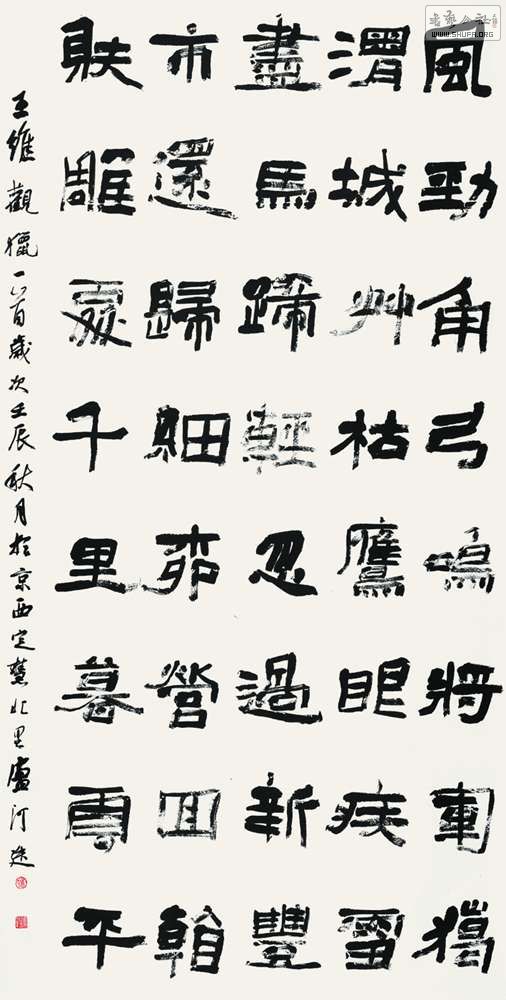 書藝公社
WWW.SHUFA.ORG
風勁角弓鳴將軍獵
渭城艸枯鷹眼疾雪
盡馬蹄輕忽過新豐
市還歸細柳營回看
䠶雕處千里暮雲平
王維觀獵一首歲次壬辰秋月於京西定慧北里盧